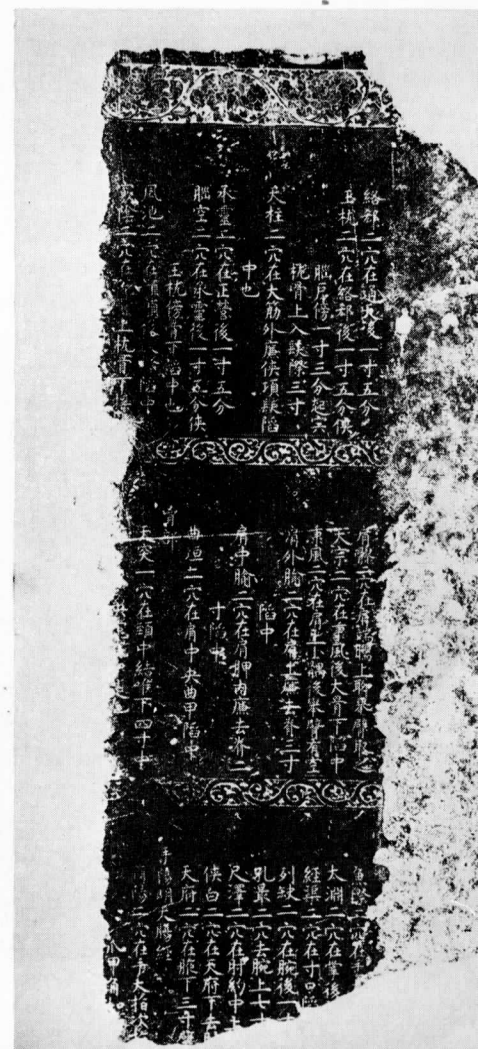 絡郄二穴在通天後一寸五分
玉枕二穴在絡郄後一寸五分俠
腦戶傍一寸三分起肉
枕骨上入髮際三寸
天柱二穴在大筋外廉俠項髮際陷
中也
承靈二穴在正營後一寸五分
腦空二穴在承靈後一寸五分俠
玉枕傍骨下陷中也
風池二穴在 陷中
二穴在 上枕骨下
肩
天宗二穴在秉風後大骨下陷中
秉風二穴在肩上下髃後舉臂有空
肩外腧二穴在肩上廉去脊三寸
陷中
肩中腧二穴在肩胛內廉去脊二
寸陷中
曲垣二穴在肩中央曲甲陷中
天突一穴在頸中結喉下四寸中
魚際二穴在
太淵二穴在掌後
經渠二穴在寸口陷
列缺二穴在腕後一寸
孔最二穴去腕上七寸
尺澤二穴在肘約中
俠白二穴在天府下去
天府二穴在腋下三寸
手陽明大腸經
商陽二穴在手大指次
爪甲角